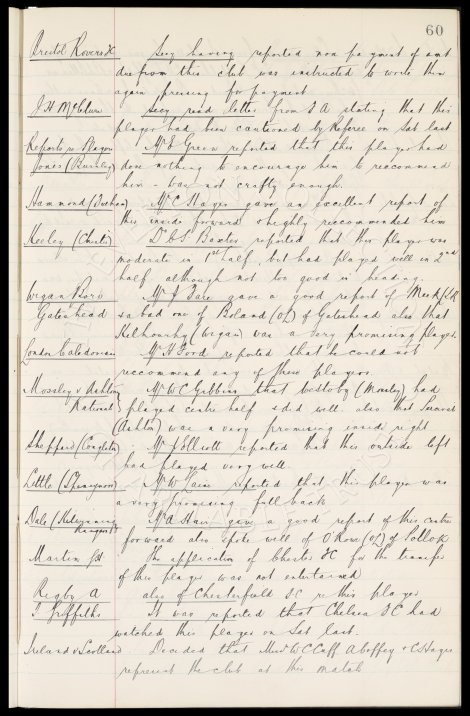 60
Bristol Rovers FC Secy having reported non payment of amt
due from this club was instructed to write them
again pressing for payment.
Secy read letter from F A stating that this
player had been cautioned by Referee on Sat last
Reports re Mr E Green reported that this player had
Jones (Burnley) done nothing to encourage him to recommend
him - was not crafty enough.
Hammond Mr C Hayes gave an excellent report of
this inside forward & highly recommended him
Keeley (Chester) Baxter reported that this player was
moderate in 1st half, but had played well in 2nd
half although not too good in heading.
Wigan Boro Mr J gave a good report of
Gateshead & a bad one of Boland (OL) of Gateshead also that
(Wigan) was a very promising player.
London Caledonian Mr H Ford reported that he could not
recommend any of these players
Mossley v Ashton Mr W C Gibbins that (Mossley) had
National played centre half & did well also that
(Ashton) was a very promising inside right
Sheppard (Congleton) Mr J Elliott reported that this outside left
had played very well.
Little Mr W reported that this player was
a very promising full back
Dale (Kilwinning Mr A gave a good report of this centre
Rangers) forward also spoke well of (OL) of Pollok
Martin The application of Chester FC for the transfer
of this player was not entertained
Rigby A also of Chesterfield FC re this player
T Griffiths It was reported that Chelsea FC had
watched this player on Sat last.
Ireland v Scotland Decided that Messrs W C Cuff A Coffey & C Hayes
represent the club at this match